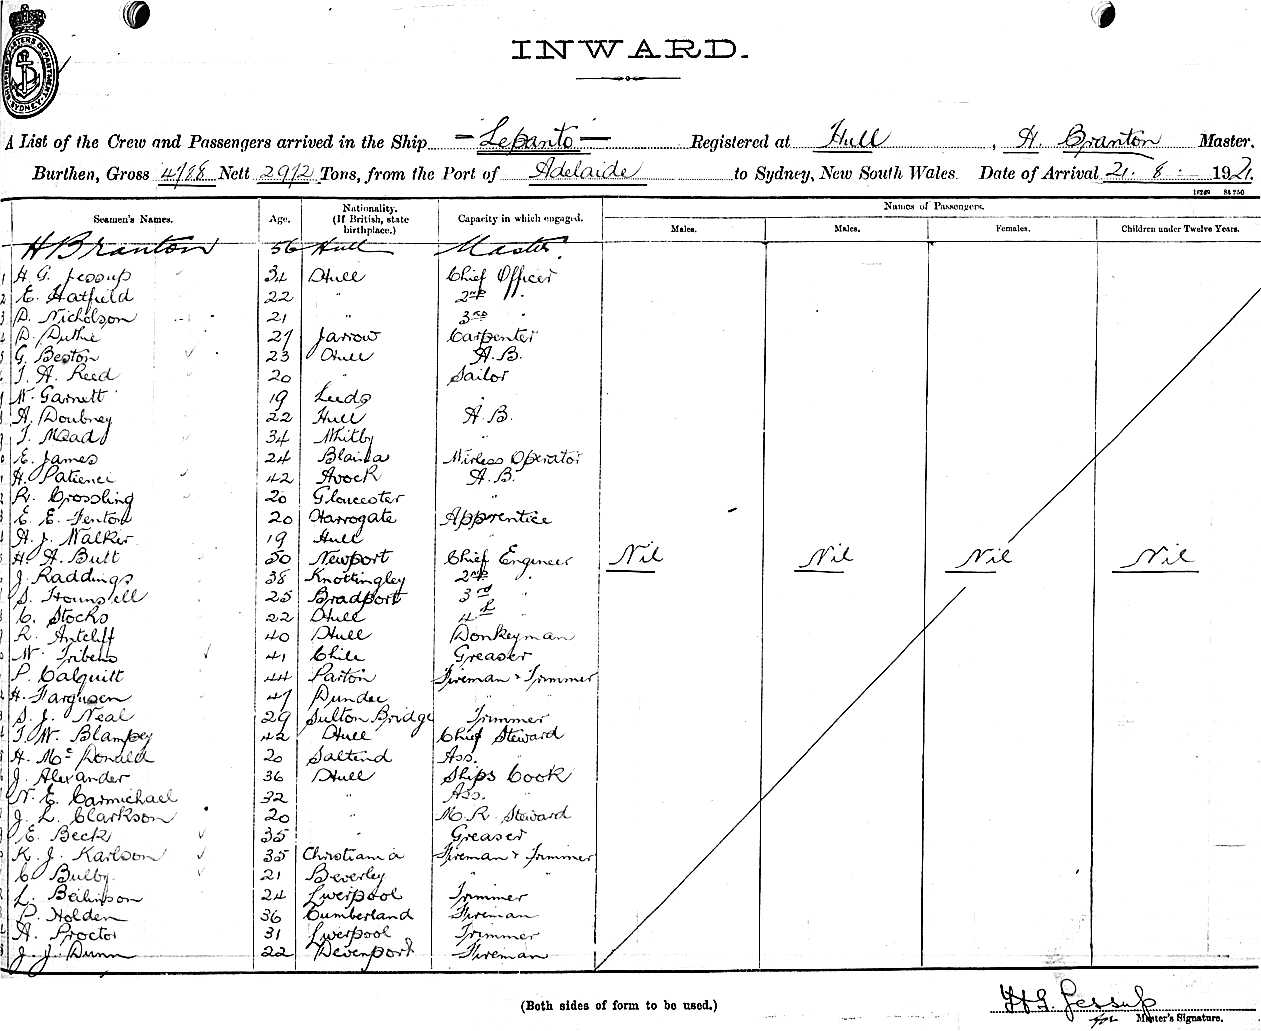 SHIPPING MASTERS DEPARTMENT SYDNEY
INWARD.
A List of the Crew and Passengers arrived in the Ship - Lepanto - Registered at Hull, H. Branton Master,
Burthen, Gross Nett 2912 Tons, from the Port of Adelaide to Sydney, New South Wales. Date of Arrival 21. 8. 1921.
Names of Passengers.
Seamen's Names. Age. Nationality. (If British, state birthplace.) Capacity in which engaged. Males. Males. Females. Children under Twelve Years.
H Branton 56 Hull Master.
1 H. G. Jessup 34 Hull Chief Officer
2 E. Hatfield 22 " 2nd "
3 D. Nicholson 21 " 3rd "
4 D. Duthie 27 Jarrow Carpenter
5 G. Beston 23 Hull A.B.
T. A. Reed 20 " Sailor
W. Garnett 19 Leeds "
A. Doubney 22 Hull A.B.
T. Mead 34 Whitby "
E. James 24 Blaina Wirless Operator
H. Patience 42 Avock A.B.
R. Crossling 20 Gloucester "
E. E. Fenton 20 Harrogate Apprentice
H. J. Walker 19 Hull "
H. A. Butt 50 Newport Chief Engineer Nil Nil Nil Nil
J. Raddings 38 Knottingley 2nd "
S. Hounsell 25 Bradport 3rd "
C. Stocks 22 Hull 4th
R. Antcliff 40 Hull Donkeyman
W. Tribens 41 Chile Greaser
P. Calquitt 44 Parton Fireman & Trimmer
H. Fargusen 47 Dundee " "
S. J. Neal 29 Sutton Bridge Trimmer
T. W. Blampey 42 Hull Chief Steward
H. McDonald 20 Saltend Ass. "
J. Alexander 36 Hull Ships Cook
N. E. Carmichael 32 " Ass. "
J. L. Clarkson 20 " M. R. Steward
E. Beck 35 " Greaser
K. J. Karlson 35 Christiania Fireman & Trimmer
C. Bulby 21 Beverley " "
L. 24 Liverpool Trimmer
P. Holden 36 Cumberland Fireman
A. Proctor 31 Liverpool Trimmer
J. J. Dunn 22 Devenport Fireman
(Both sides of form to be used.)
H G. Jessup
Master's Signature.